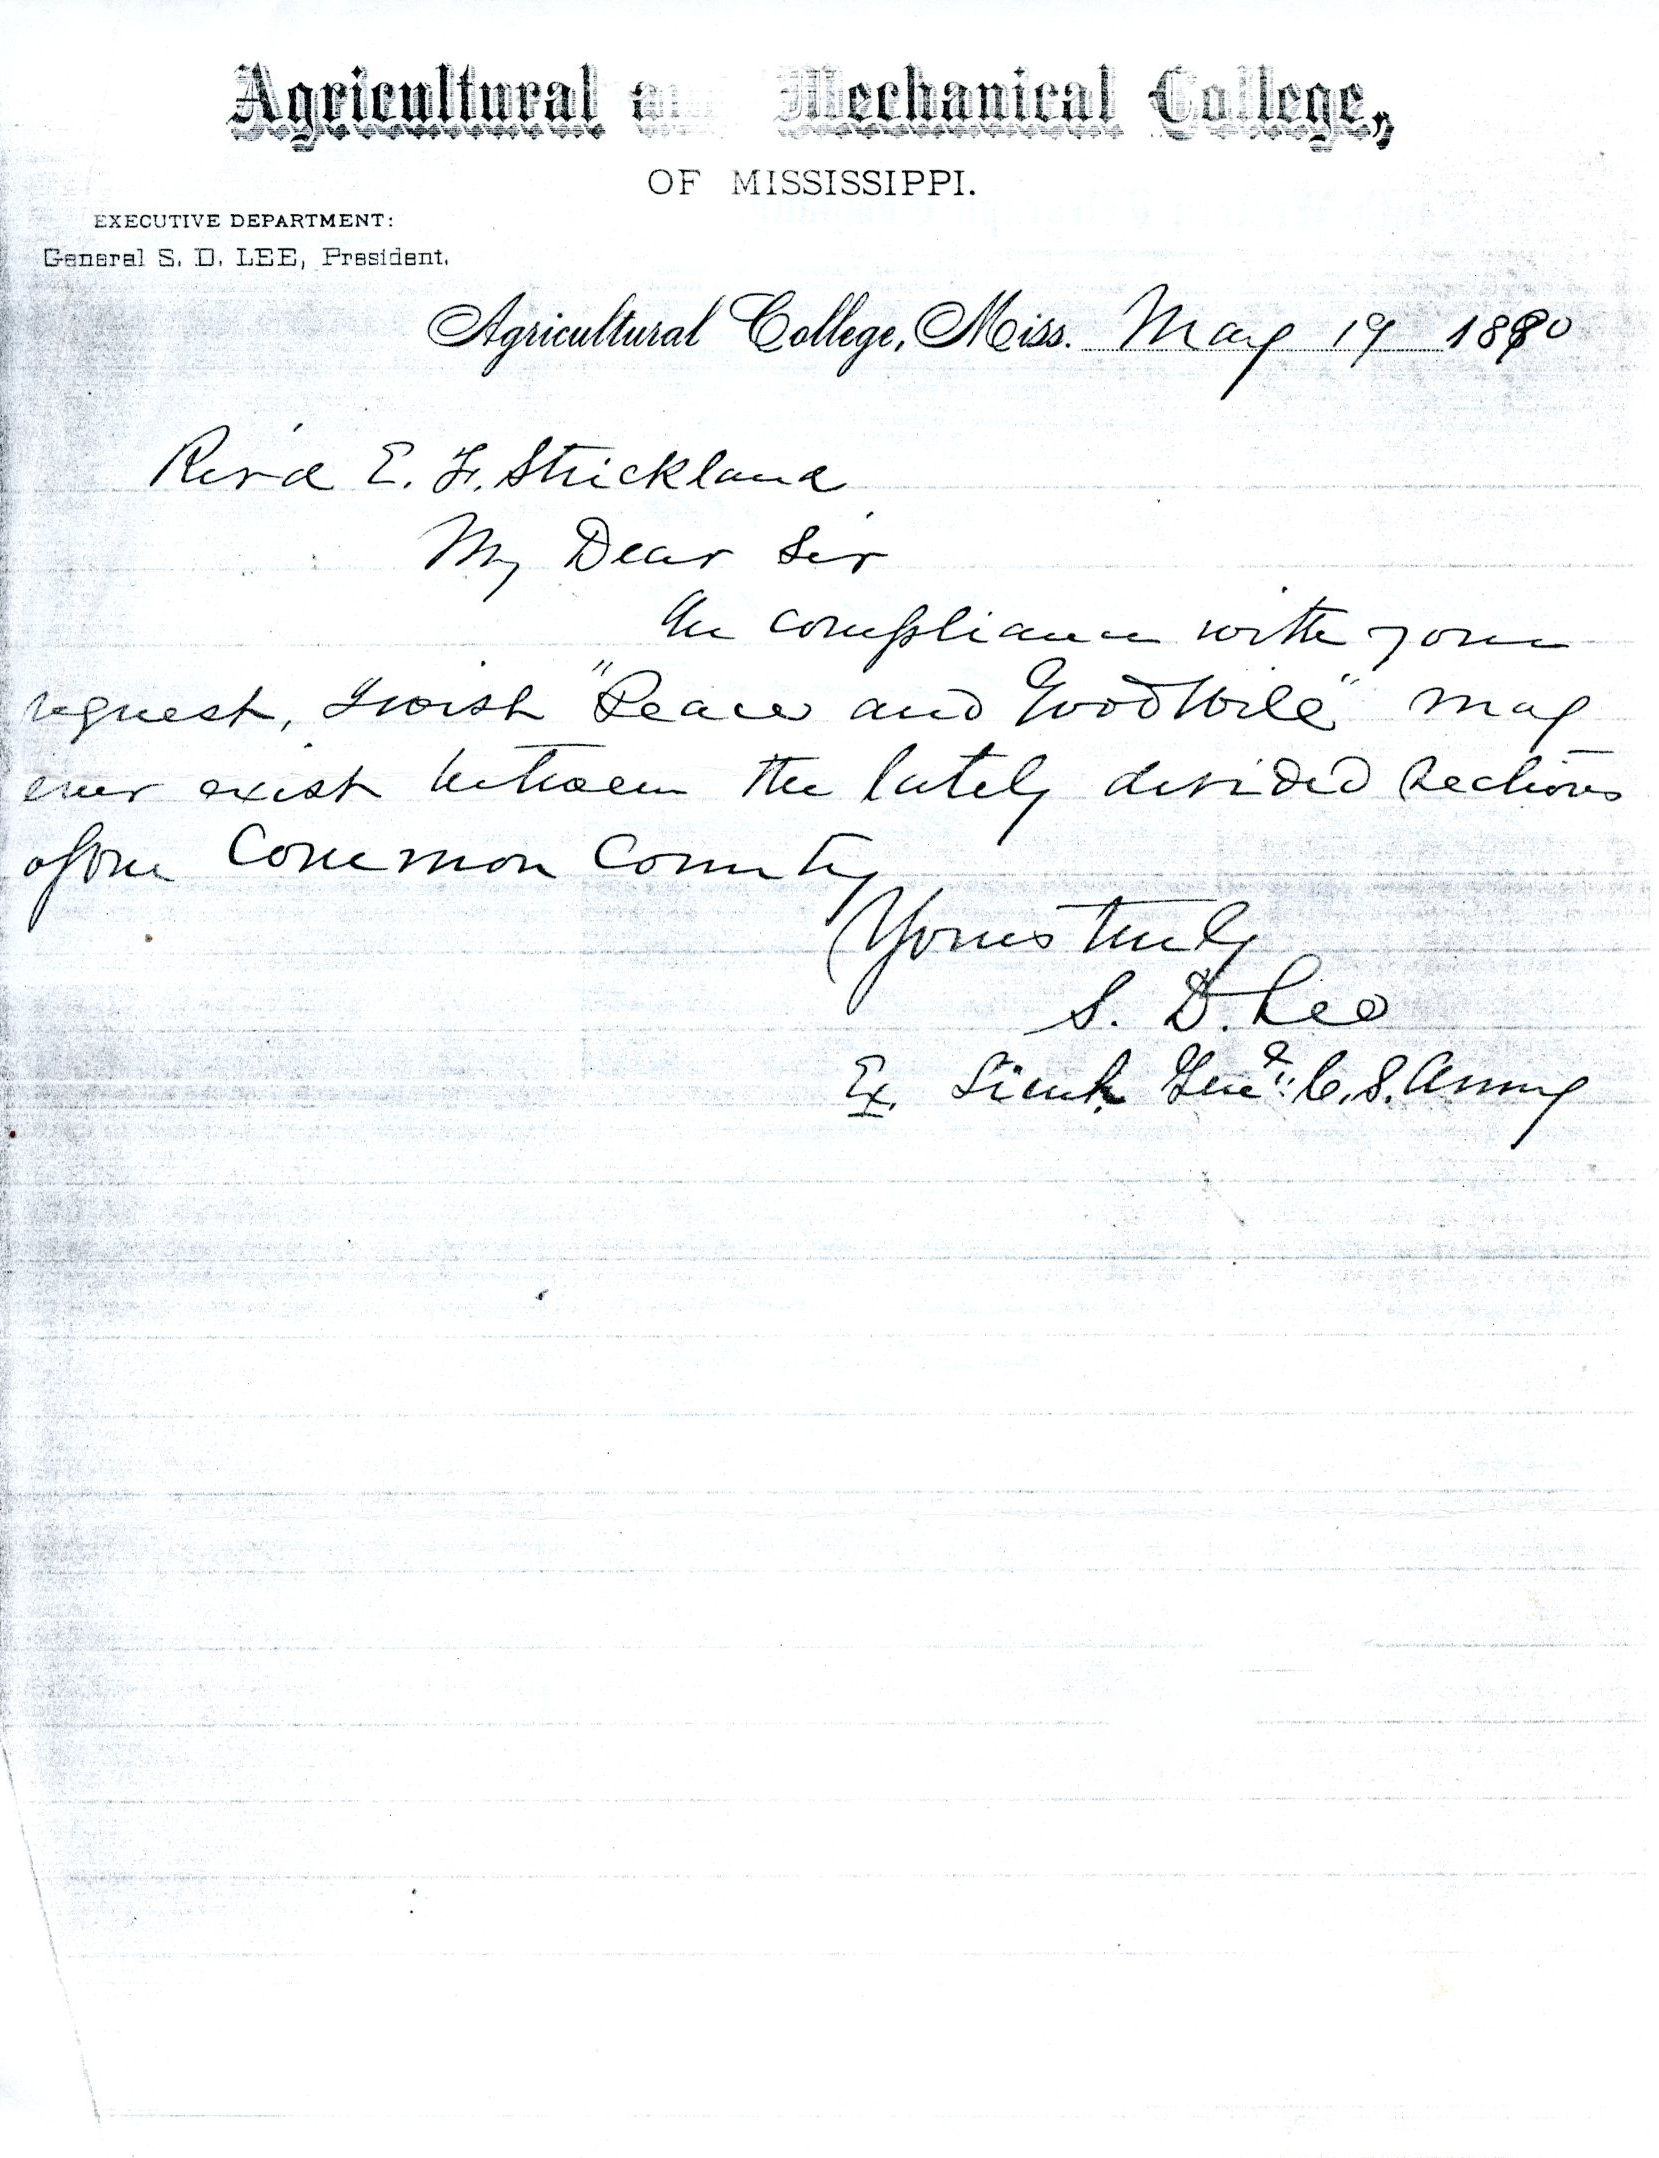 Agricultural and Mechanical College,
OF MISSISSIPPI.
EXECUTIVE DEPARTMENT:
General S. D. LEE, President.
Agricultural College, Miss. May 19 1890
Rev'd E. F. Strickland
My Dear Sir
In compliance with your
request, I wish "Peace and Good Will" may
ever exist between the lately divided sections
of our Common Country
Yours truly
S. D. Lee
Ex. Lieut. Genl. C. S. Army